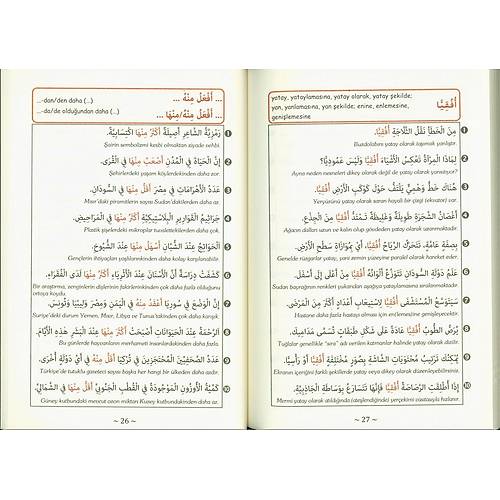 ... أَفْعَلُ مِنْهُ ...
... أَفْعَلُ مِنْهُ/مِنْهَا ...
...-dan/den daha (...)
...-da/de olduğundan daha (...)
❶ رَمْزِيَّةُ الشَّاعِرِ أَصِيلَةٌ أَكْثَرُ مِنْهَا اكْتِسَابِيَّةً.
Şairin sembolizmi kesbi olmaktan ziyade vehbi.
❷ إِنَّ الْحَيَاةَ فِي الْمُدُنِ أَصْعَبُ مِنْهَا فِي الْقُرَى.
Şehirlerdeki yaşam köylerdekinden daha zor.
❸ عَدَدُ الْأَهْرَامَاتِ فِي مِصْرَ أَقَلُّ مِنْهَا فِي السُّودَانِ.
Mısır'daki piramitlerin sayısı Sudan'dakilerden daha az.
❹ جَرَاثِيمُ الْقَوَارِيرِ الْبِلَاسْتِيكِيَّةِ أَكْثَرُ مِنْهَا فِي الْمَرَاحِيضِ.
Plastik şişelerdeki mikroplar tuvaletlerdekilerden daha çok.
❺ الْحَوَائِجُ عِنْدَ الشَّبَابِ أَسْهَلُ مِنْهَا عِنْدَ الشُّيُوخِ.
Gençlerden ihtiyaçların karşılanması yaşlılardakinden daha kolay.
❻ كَشَفَتْ دِرَاسَةٌ أَنَّ الْأَسْنَانَ عِنْدَ الْأَثْرِيَاءِ أَكْثَرُ مِنْهَا لَدَى الْفُقَرَاءِ.
Bir araştırma, zenginlerin dişlerinin fakirlerinkinden çok daha fazla olduğunu
ortaya koydu.
❼ إِنَّ الْوَضْعَ فِي سُورِيَا أَعْقَدُ مِنْهُ فِي الْيَمَنِ وَمِصْرَ وَلِيبِيَا وَتُونِسَ.
Suriye'deki durum Yemen, Mısır, Libya ve Tunus'takinden daha karmaşık.
❽ الرَّحْمَةُ عِنْدَ الْحَيَوَانَاتِ أَصْبَحَتْ أَكْثَرَ مِنْهَا عِنْدَ الْبَشَرِ هَذِهِ الْأَيَّامَ.
Bu günlerde hayvanların merhameti insanlardakinden daha fazla.
❾ عَدَدُ الصَّحَفِيِّينَ الْمُحْتَجَزِينَ فِي تُرْكِيَا أَقَلُّ مِنْهُ فِي أَيِّ دَوْلَةٍ أُخْرَى.
Türkiye'de tutuklu gazeteci sayısı başka her hangi bir ülkeden daha azdır.
❿ كَمِّيَّةُ الْأُوزُونِ الْمَوْجُودَةِ فِي الْقُطْبِ الْجَنُوبِيِّ أَقَلُّ مِنْهَا فِي الشَّمَالِيِّ.
Güney kutbundaki mevcut ozon miktarı Kuzey kutbundakinden daha az.
~ 26 ~
أُفُقِيًّا
yatay, yataylamasına, yatay olarak, yatay şekilde;
yan, yanlamasına, yan şekilde; enine, enlemesine,
genişlemesine
❶ مِنَ الْخَطَأِ نَقْلُ الثَّلَّاجَةِ أُفُقِيًّا.
Buzdolabını yatay olarak taşımak yanlıştır.
❷ لِمَاذَا الْمِرْآةُ تَعْكِسُ الْأَشْيَاءَ أُفُقِيًّا وَلَيْسَ عَمُودِيًّا؟
Ayna neden nesneleri dikey olarak değil de yatay olarak yansıtıyor?
❸ هُنَاكَ خَطٌّ وَهْمِيٌّ يَلْتَفُّ حَوْلَ كَوْكَبِ الْأَرْضِ أُفُقِيًّا.
Yeryüzünü yatay olarak saran hayali bir çizgi (ekvator) var.
❹ أَغْصَانُ الشَّجَرَةِ طَوِيلَةٌ وَغَلِيظَةٌ تَمْتَدُّ أُفُقِيًّا مِنَ الْجِذْعِ.
Ağacın dalları uzun ve kalın olup gövdeden yatay olarak uzanmaktadır.
❺ بِصِفَةٍ عَامَّةٍ، تَتَحَرَّكُ الرِّيَاحُ أُفُقِيًّا، أَيْ بِمُوَازَاةِ سَطْحِ الْأَرْضِ.
Genelde rüzgarlar yatay, yani zemin yüzeyine paralel olarak hareket eder.
❻ عَلَمُ دَوْلَةِ السُّودَانِ تَتَوَزَّعُ أَلْوَانُهُ أُفُقِيًّا مِنْ أَعْلَى إِلَى أَسْفَلَ.
Sudan bayrağının renkleri yukarıdan aşağıya yatay olarak dağılmaktadır.
❼ سَيَتَوَسَّعُ الْمُسْتَشْفَى أُفُقِيًّا لِاسْتِيعَابِ أَعْدَادٍ أَكْثَرَ مِنَ الْمَرْضَى.
Hastane daha fazla hastayı alması için enlemesine genişleyecektir.
❽ يُرَصُّ الطُّوبُ أُفُقِيًّا عَادَةً عَلَى شَكْلِ طَبَقَاتٍ تُسَمَّى مَدَامِيكَ.
Tuğlalar genellikle "sıra" adı verilen katmanlar halinde yatay olarak dizilir.
❾ يُمْكِنُكَ تَرْتِيبُ مُحْتَوَيَاتِ الشَّاشَةِ بِصُوَرٍ مُخْتَلِفَةٍ أُفُقِيًّا أَوْ رَأْسِيًّا.
Ekranın içeriğini farklı şekillerde yatay veya dikey olarak düzenleyebilirsin.
❿ إِذَا أُطْلِقَتِ الرَّصَاصَةُ أُفُقِيًّا فَإِنَّهَا تَتَسَارَعُ بِوَسَاطَةِ الْجَاذِبِيَّةِ.
Mermi yatay olarak atıldığında (ateşlendiğinde) yerçekimi vasıtasıyla hızlanır.
~ 27 ~